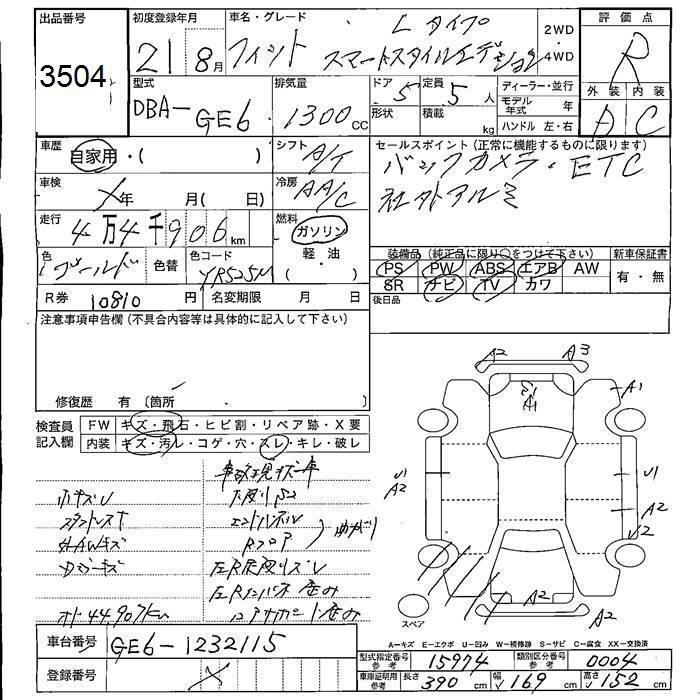 出品番号
3504
初度登録年月
21 8月
車名・グレード
フィット
Lタイプ
スマートスタイルエディション
2WD
・
4WD
評価点
R
外装 内装
A C
型式
DBA-GE6
排気量
1300cc
ドア
形状
5
定員 5人
積載 kg
ディーラー・並行
モデル年式 年
ハンドル 左・右
車歴
自家用・( )
シフト
A/T
セールスポイント(正常に機能するものに限ります)
バックカメラ・ETC
社外アルミ
車検
年 月( 日)
冷房
AA/C
走行
4万4千906km
燃料
ガソリン
軽・油
( )
色
ゴールド
色替
色コード
YR525M
装備品(純正品に限り○をつけて下さい)
PS PW ABS エアB AW
SR ナビ TV カワ
新車保証書
有・無
R券 10810円
名変期限 月 日
後日品
注意事項申告欄(不具合内容等は具体的に記入して下さい)
修復歴 有〔箇所
検査員
記入欄
FW キズ・飛石・ヒビ割・リペア跡・X要
内装 キズ・汚レ・コゲ・穴・スレ・キレ・破レ
小キズU
外AWキズ
エンドパネル
Rフロア
オド44,907km
A2 A3
A1
U1
A2
U1
A2
U2
A2
A2
スペア
A-キズ E-エクボ U-凹み W-補修跡 S-サビ C-腐食 XX-交換済
車台番号
GE6-1232115
登録番号
型式指定番号
参考
15974
類別区分番号
参考
0004
車庫証明用
参考
長さ 390cm
幅 169cm
高さ 152cm